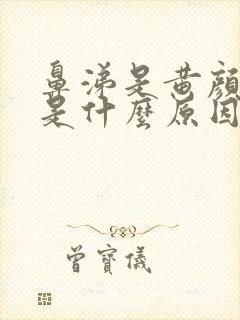 鼻涕是黄颜
是什麼原因
曾寶儀